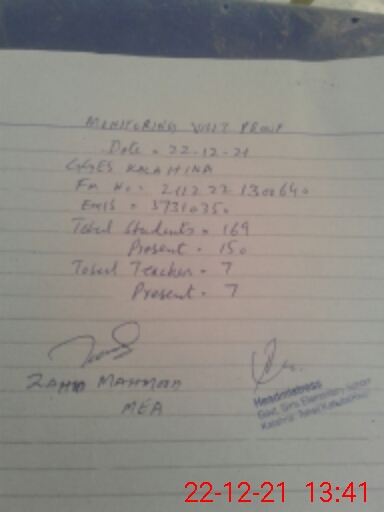 MONITORING VISIT PROUF
Date = 22-12-21
GGES KALAHINA
Fm No = 211222130064o
EMIS = 3731035o
Total Students = 169
Present = 150
Total Teacher = 7
Present = 7
ZAHID MAHMOOD
MEA
Headmistress
Govt. Girls Elementary School
22-12-21 13:41